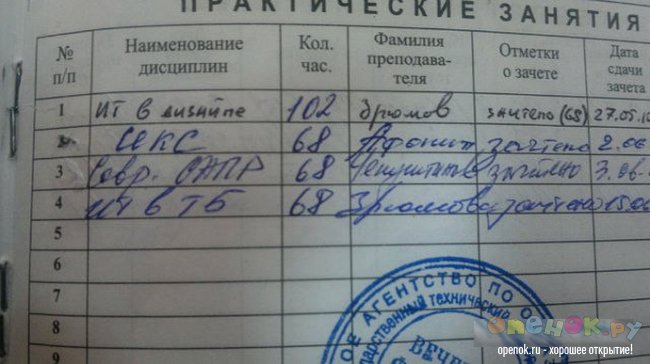 ПРАКТИЧЕСКИЕ ЗАНЯТИЯ
№ п/п Наименование дисциплин Кол. час. Фамилия преподава-теля Отметки о зачете Дата сдачи зачета
1 ИТ в дизайне 102 Зрюмов зачтено (68) 27.05.
2 СЕКС 68 Афонин зачтено 2.06
3 Совр. САПР 68 зачтено 3.06.
4 ИТ в ТБ 68 Зрюмова зачтено 15.0
5
6
7
8
9
ОЕ АГЕНТСТВО ПО О
ДАРСТВЕННЫЙ ТЕХНИЧЕСКИЙ
опенок.ру
openok.ru - хорошее открытие!